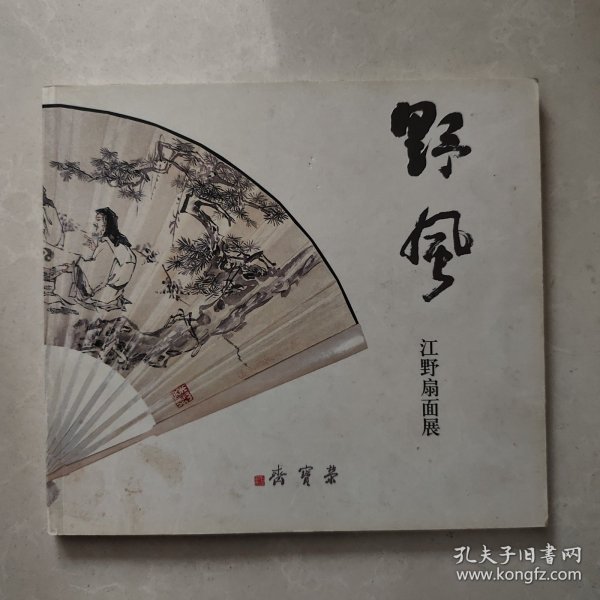 野風
江野扇面展
榮寳齋
孔夫子旧书网
www.kongfz.com